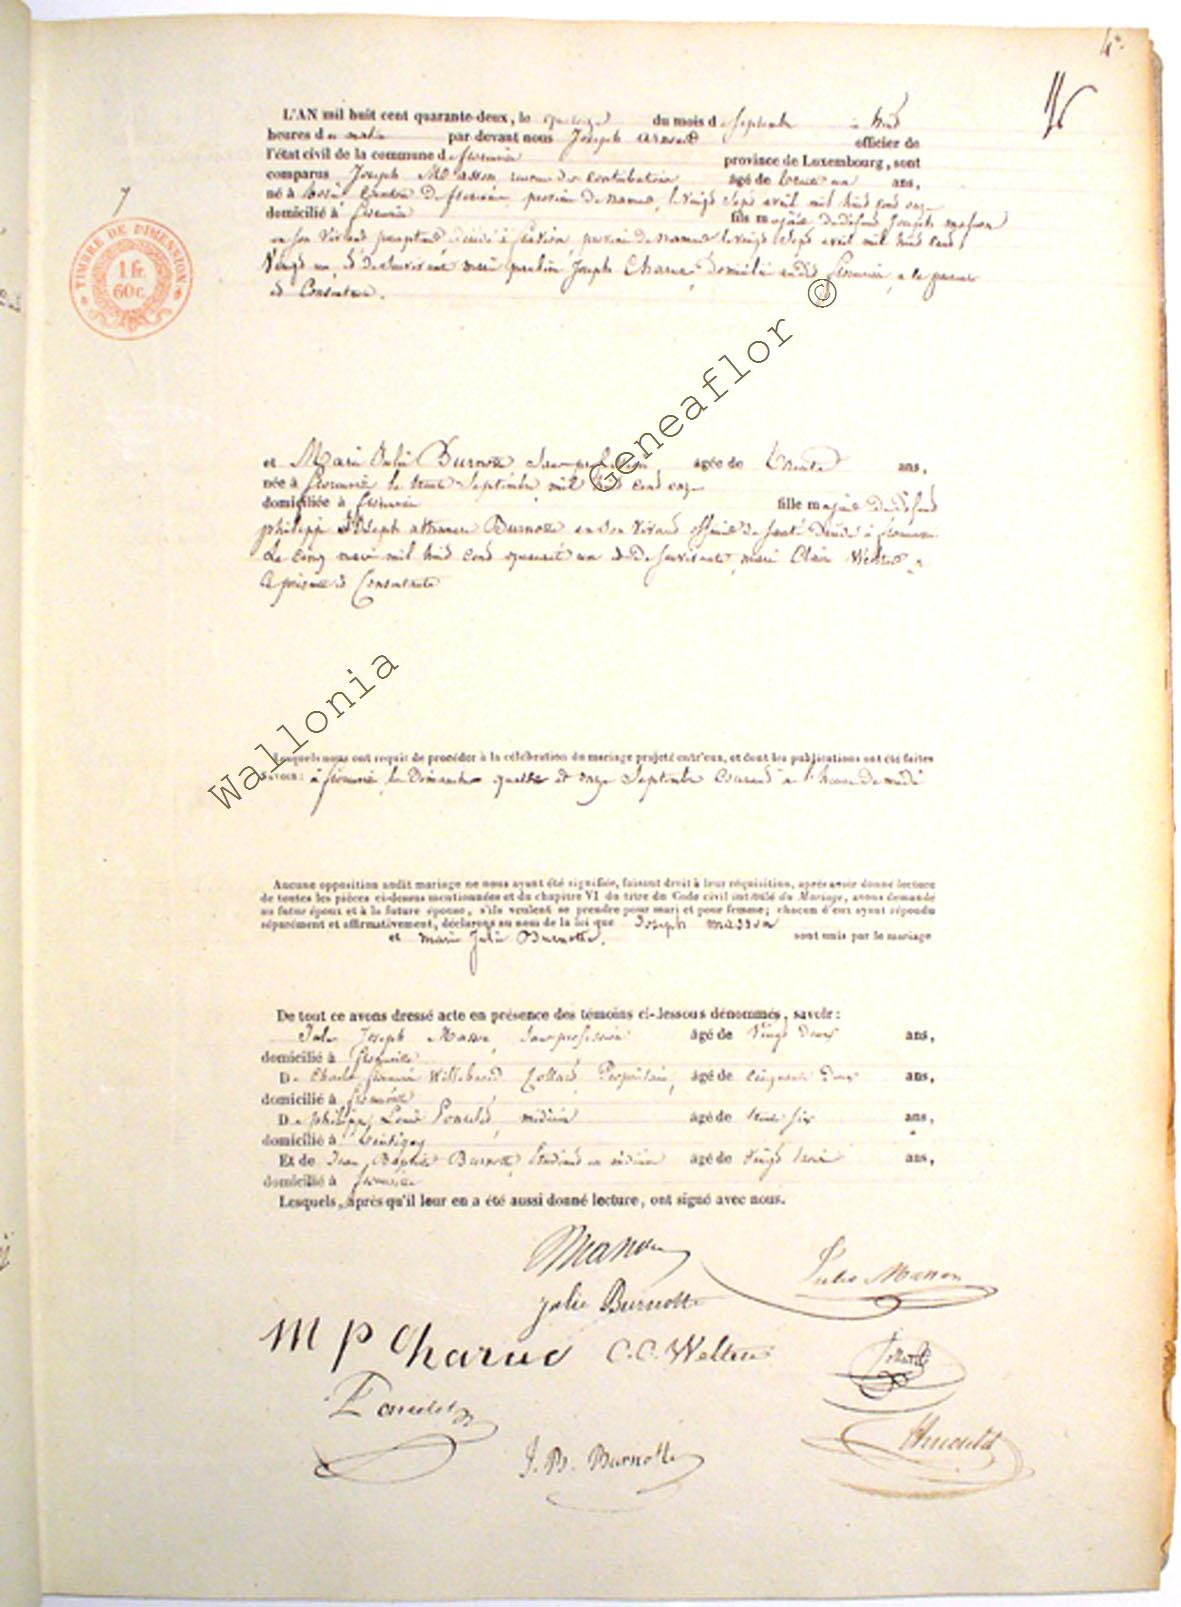 4.
16
L'AN mil huit cent quarante-deux, le quinze du mois de Septembre à huit
heures du matin par devant nous Joseph arnould officier de
l'état civil de la commune de florenville province de Luxembourg, sont
comparus Joseph Masson, receveur des Contributions âgé de trente un ans,
né à province de namur, le vingt Sept avril mil huit cent onze
domicilié à florenville fils majeur du défunt Joseph masson
en son vivant décédé à province de namur le vingt Sept avril mil huit cent
Vingt un, & de Survivante marie pauline Joseph Charue, Domiciliée audit florenville, a ce présente
et Consentante.
7
TIMBRE DE DIMENSION
1 fr.
60 c.
et Marie Julie Burnotte Sans profession agée de trente ans,
née à florenville le Septembre mil huit cent onze
domiciliée à florenville fille majeure du défunt
philippe Joseph Burnotte en son vivant officier de Santé décédé à florenville
Le cinq mars mil huit cent quarante un et de Survivante, marie Claire Weltre
Ce présente & Consentante
Lesquels nous ont requis de procéder à la célébration du mariage projeté entr'eux, et dont les publications ont été faites
SAVOIR : à florenville, les Dimanches quatre et onze Septembre Courant à l'heure de midi
Aucune opposition audit mariage ne nous ayant été signifiée, faisant droit à leur réquisition, après avoir donné lecture
de toutes les pièces ci-dessus mentionnées et du chapitre VI du titre du Code civil intitulé du Mariage, avons demandé
au futur époux et à la future épouse, s'ils veulent se prendre pour mari et pour femme; chacun d'eux ayant répondu
séparément et affirmativement, déclarons au nom de la loi que Joseph masson
et marie Julie Burnotte. sont unis par le mariage
De tout ce avons dressé acte en présence des témoins ci-dessous dénommés, savoir :
Jules Joseph Masson, Sans profession âgé de Vingt deux ans,
domicilié à florenville
De Charles Willebrord Collard Propriétaire, âgé de cinquante deux ans,
domicilié à florenville
De philippe Louis médecin âgé de trente six ans,
domicilié à tintigny
Et de Jean Baptiste Burnotte, Etudiant en médecine âgé de vingt trois ans,
domicilié à florenville
Lesquels, après qu'il leur en a été aussi donné lecture, ont signé avec nous.
Masson
Jules Masson
Julie Burnotte
M P Charue
C. C. Weltre
Collard
J. B. Burnotte
Arnould
Wallonia Geneaflor ©